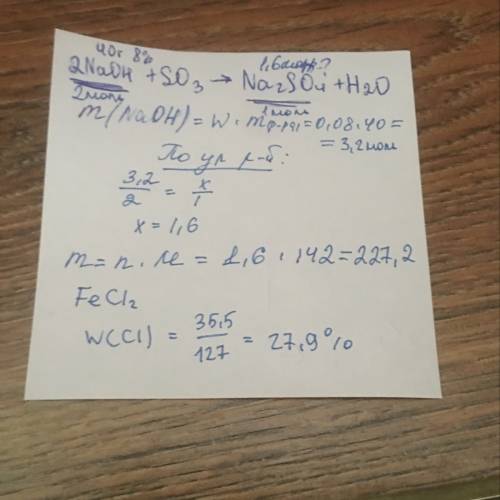 40г 8% 1,6моль?
2NaOH + SO3 → Na2SO4 + H2O
2моль 1моль
m(NaOH) = w · mр-ра = 0,08 · 40 =
= 3,2 мол
По ур. р-б:
3,2/2 = x/1
x = 1,6
m = n · M = 1,6 · 142 = 227,2
FeCl2
W(Cl) = 35,5/127 = 27,9%